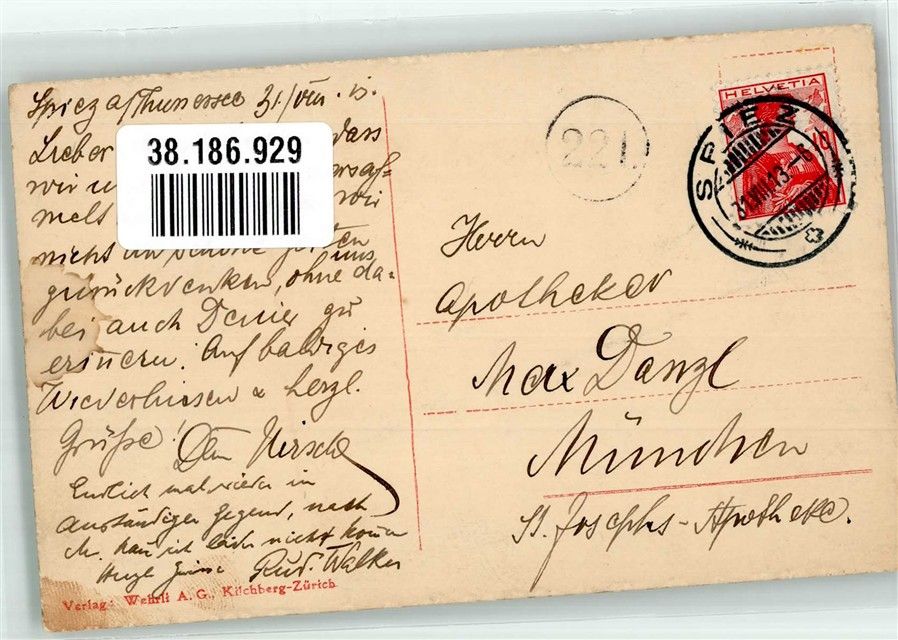 Spiez a/Thunersee 31/VIII. 13.
Lieber dass
wir u
melt wir
nicht an schöne Zeiten
uns
zurückdenken, ohne da-
bei auch Deiner zu
erinnern. Auf baldiges
Wiedersehen & herzl.
Grüße! Dein
Endlich mal wieder in
anständiger Gegend, nach
M. kann ich leider nicht kommen
Herzl Grüsse Rud. Walker
Verlag: Wehrli A. G., Kilchberg-Zürich
38.186.929
221
HELVETIA
SPIEZ
31.VIII.13.-8
Herrn
Apotheker
Max Danzl
München
St. Josephs-Apotheke.